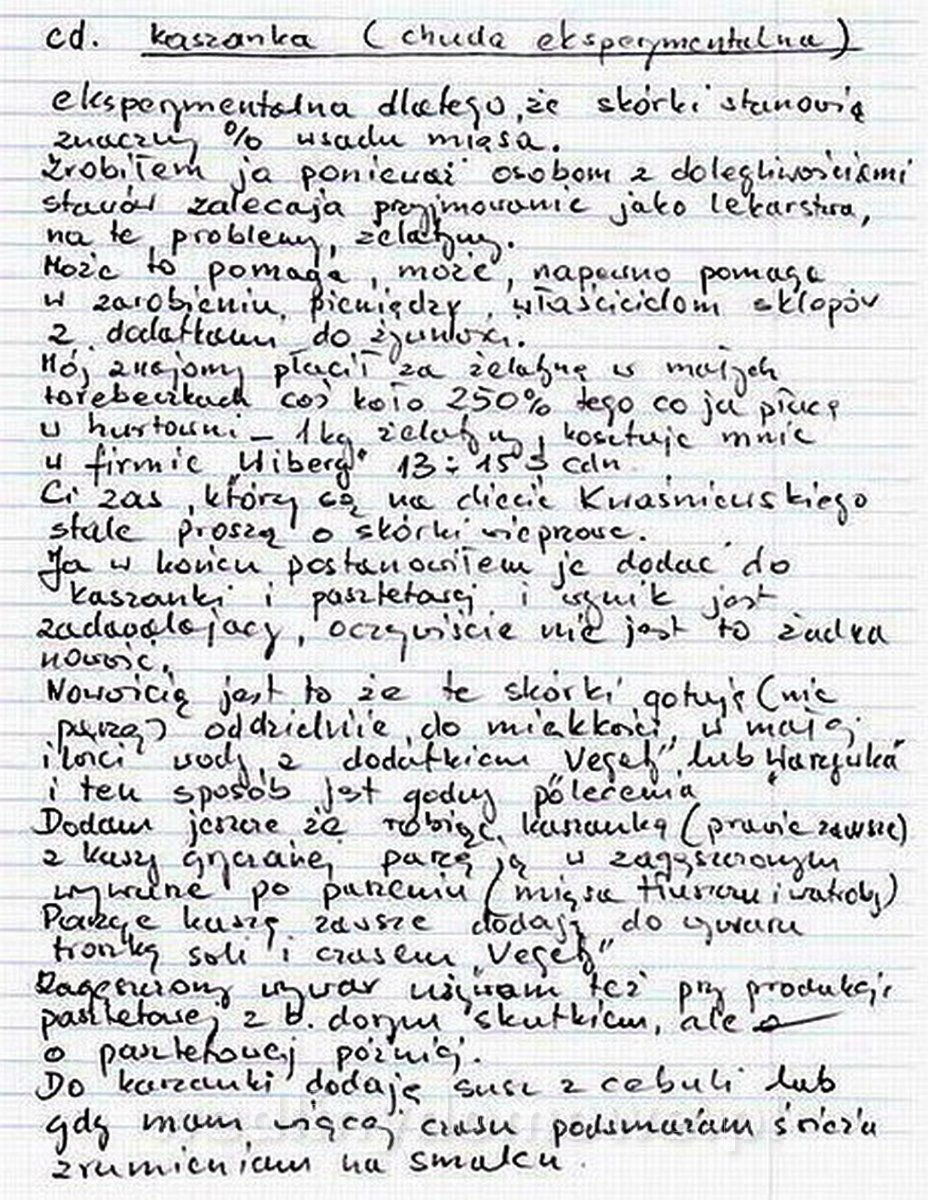 cd. kaszanka (chuda eksperymentalna)
eksperymentalna dlatego, że skórki stanowią
znaczny % wsadu mięsa.
Zrobiłem ja ponieważ osobom z dolegliwościami
stawów zalecają przyjmowanie jako lekarstwa,
na te problemy, żelatyny.
Może to pomaga, może, napewno pomaga
w zarobieniu pieniędzy, właścicielom sklepów
z dodatkami do żywności.
Mój znajomy płacił za żelatynę w małych
torebeczkach coś koło 250% tego co ja płacę
w hurtowni – 1kg żelatyny, kosztuje mnie
w firmie "Wiberg" 13÷15 $ cdn.
Ci zaś, którzy są na diecie Kwaśniewskiego
stale proszą o skórki wieprzowe.
Ja w końcu postanowiłem je dodać do
kaszanki i pasztetowej i wynik jest
zadawalający, oczywiście nie jest to żadna
nowość.
Nowością jest to że te skórki gotuję (nie
parzę) oddzielnie do miękkości, w małej
ilości wody z dodatkiem "Vegety" lub "Warzywka"
i ten sposób jest godny polecenia
Dodam jeszcze że robiąc kaszankę (prawie zawsze)
z kaszy gryczanej parzę ją w zagęszczonym
wywarze po parzeniu (mięsa tłuszczu i wątroby)
Parząc kaszę zawsze dodaję do wywaru
troszkę soli i czasem "Vegety"
Zagęszczony wywar używam też przy produkcji
pasztetowej z b. dorym skutkiem, ale
o pasztetowej później.
Do kaszanki dodaję susz z cebuli lub
gdy mam więcej czasu podsmażam świeżą
zrumieniam na smalcu.